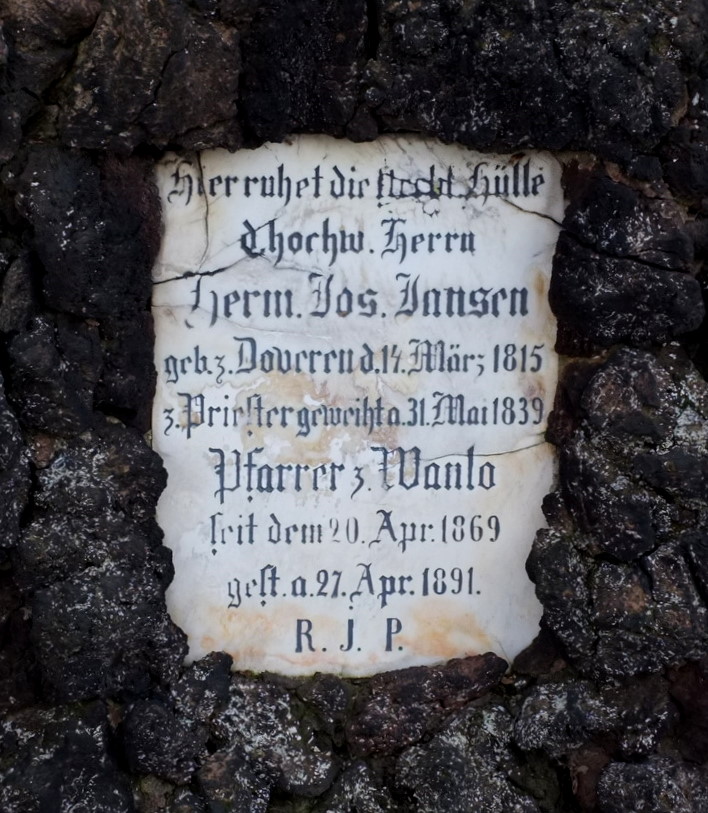 Hier ruhet die sterbl. Hülle
d. hochw. Herrn
Herm. Jos. Jansen
geb. z. Doveren d. 14. März 1815
z. Priester geweiht a. 31. Mai 1839
Pfarrer z. Wanlo
seit dem 20. Apr. 1869
gest. a. 27. Apr. 1891.
R. J. P.